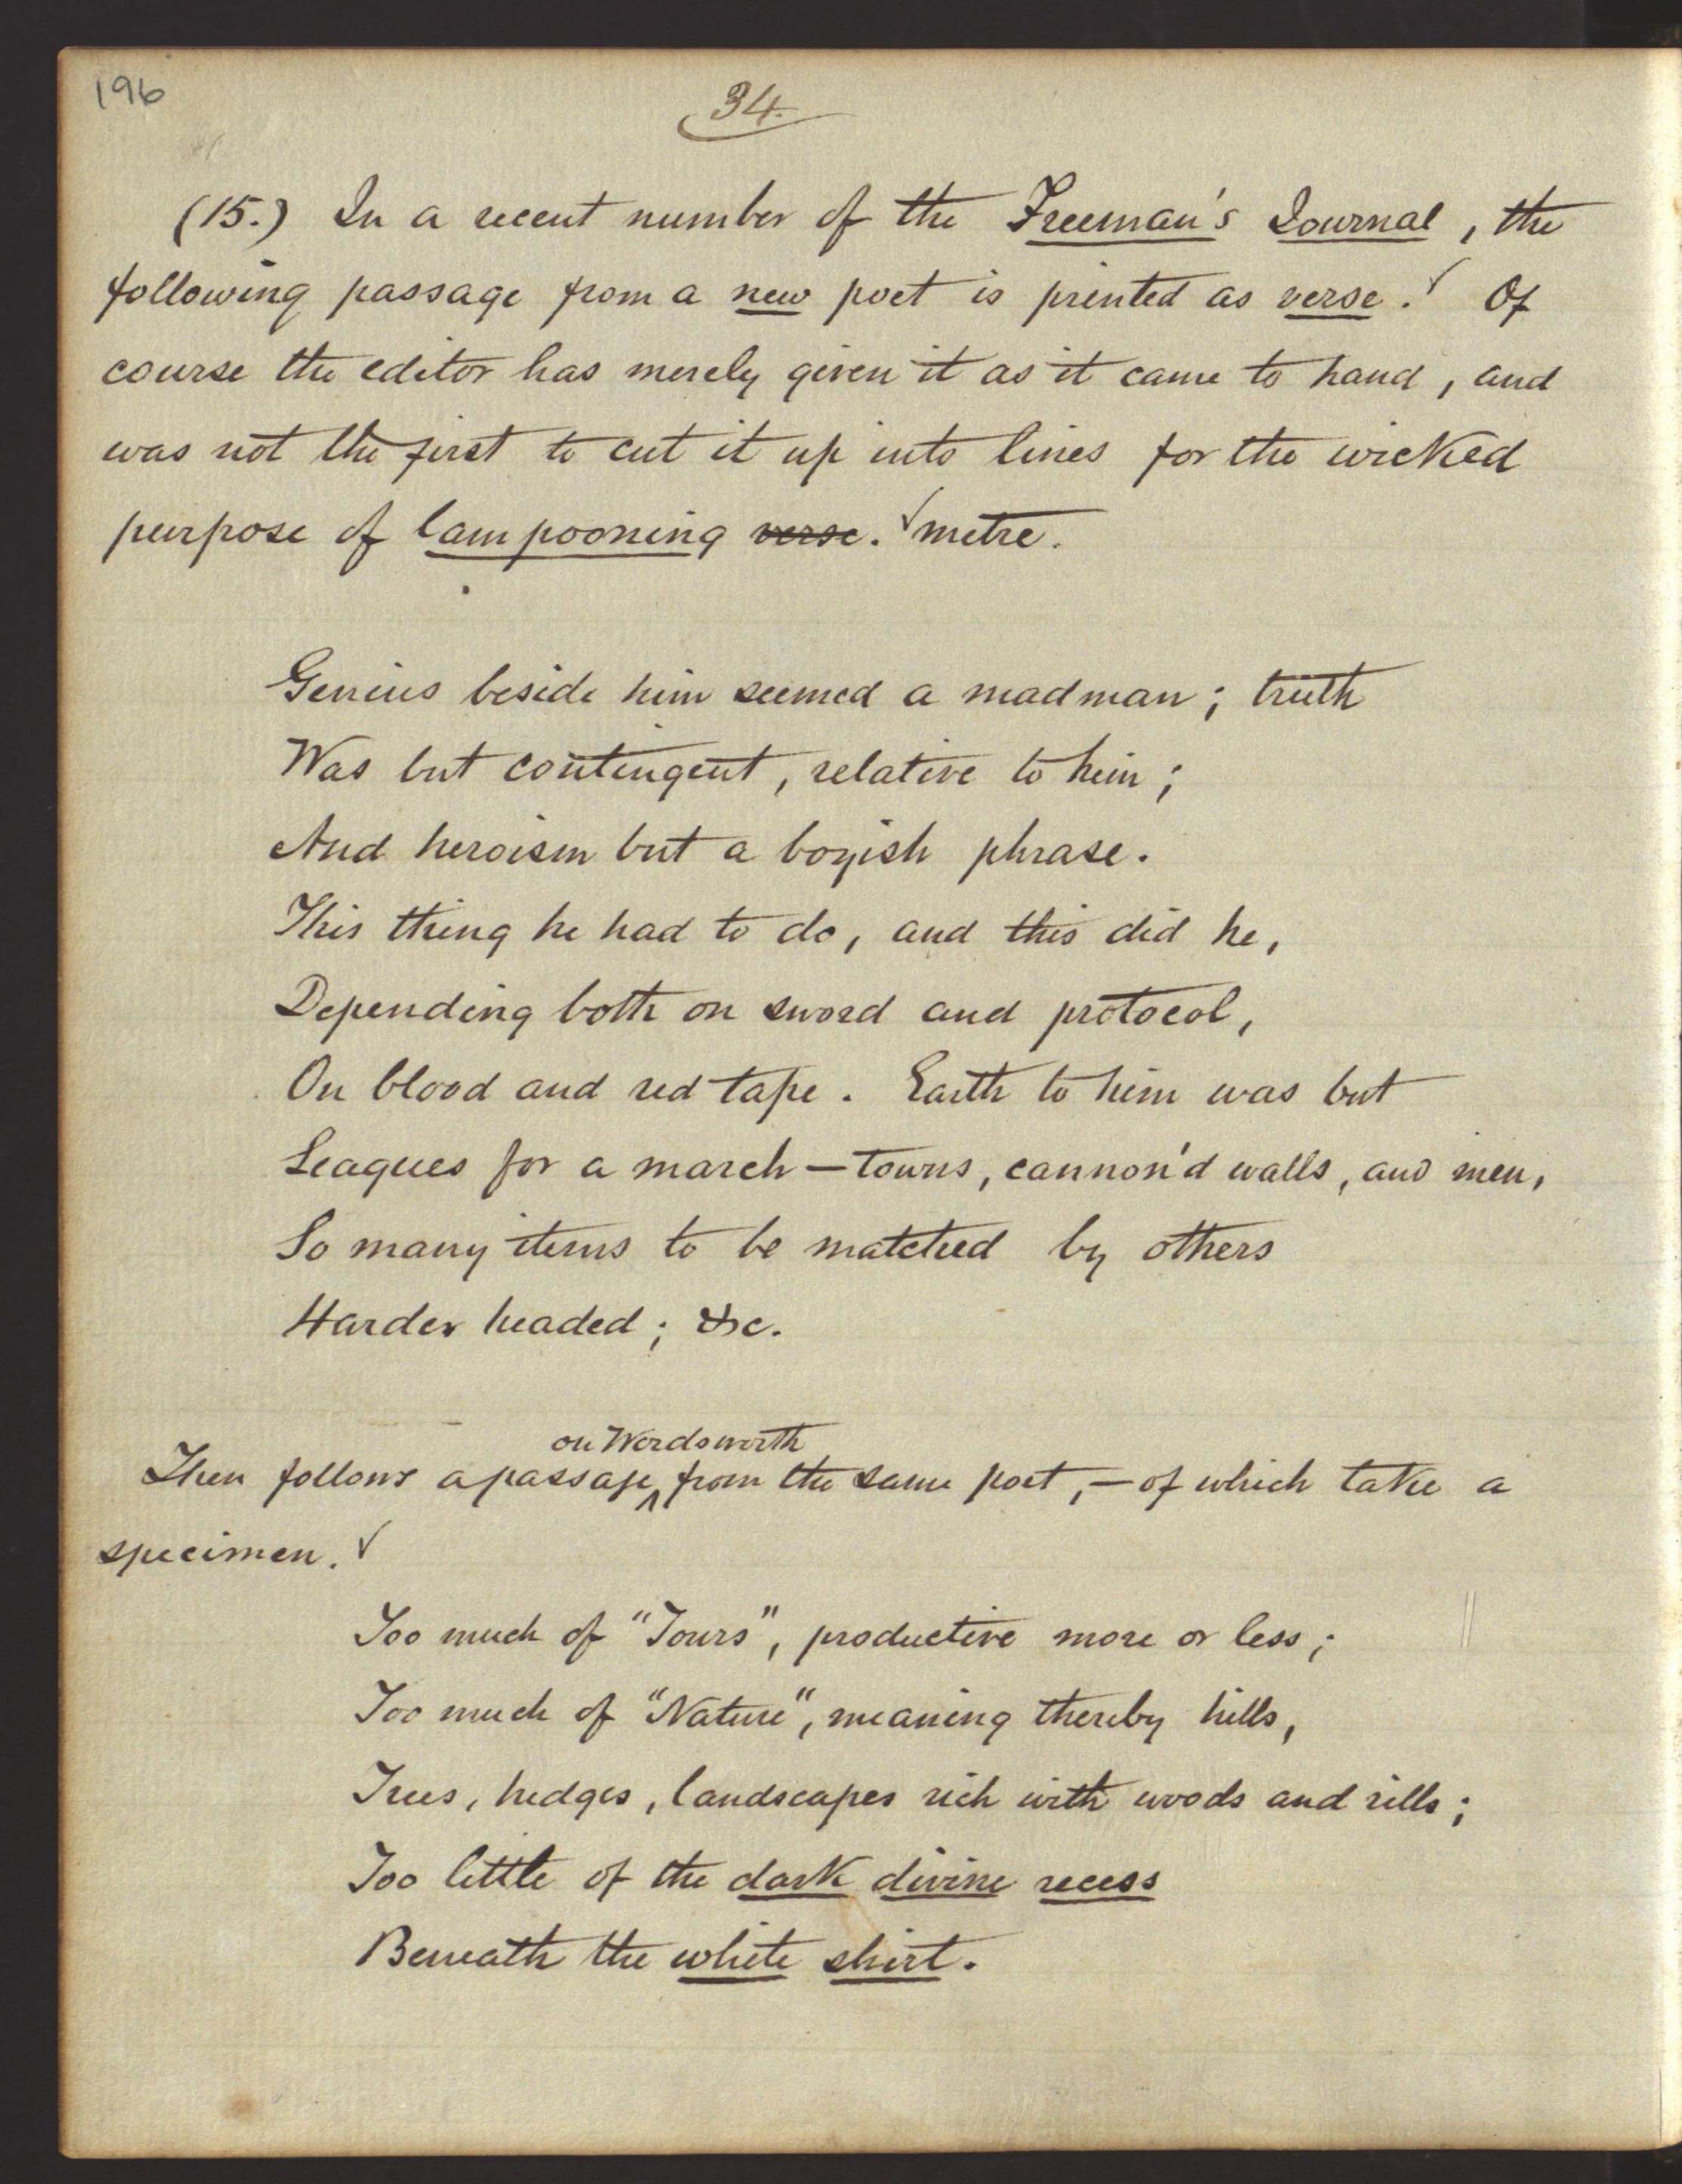 196
34.
(15.) In a recent number of the Freeman's Journal, the
following passage from a new poet is printed as verse. Of
course the editor has merely given it as it came to hand, and
was not the first to cut it up into lines for the wicked
purpose of lampooning verse. metre.
Genius beside him seemed a madman; truth
Was but contingent, relative to him;
And heroism but a boyish phrase.
This thing he had to do, and this did he,
Depending both on sword and protocol,
On blood and red tape. Earth to him was but
Leagues for a march — towns, cannon'd walls, and men,
So many items to be matched by others
Harder headed; &c.
on Wordsworth
Then follows a passage ^ from the same poet, — of which take a
specimen.
Too much of "Tours", productive more or less;
Too much of "Nature", meaning thereby hills,
Trees, hedges, landscapes rich with woods and rills;
Too little of the dark divine recess
Beneath the white shirt.